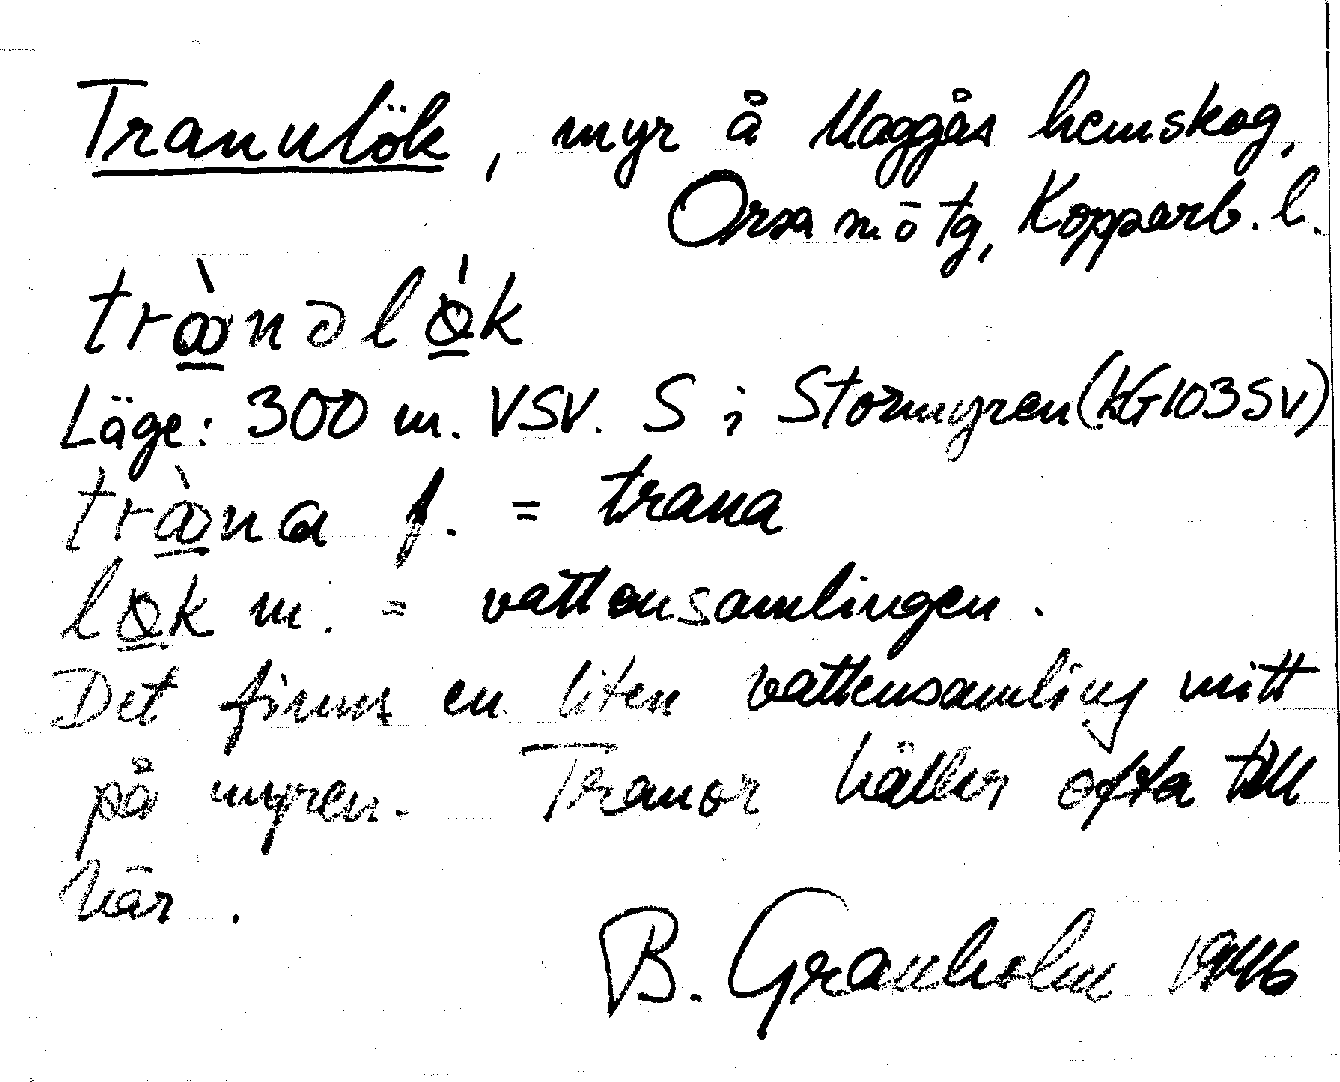 Tranulök, myr å Maggås hemskog,
Orsa m ö tg, Kopparb. l.
Läge: 300 m. VSV. S i Stormyren (kG1035V)
f. = trana
m. = vattensamlingen.
Det finns en liten vattensamling mitt
på myren. Tranor håller ofta till
här.
B. Granholm 1946